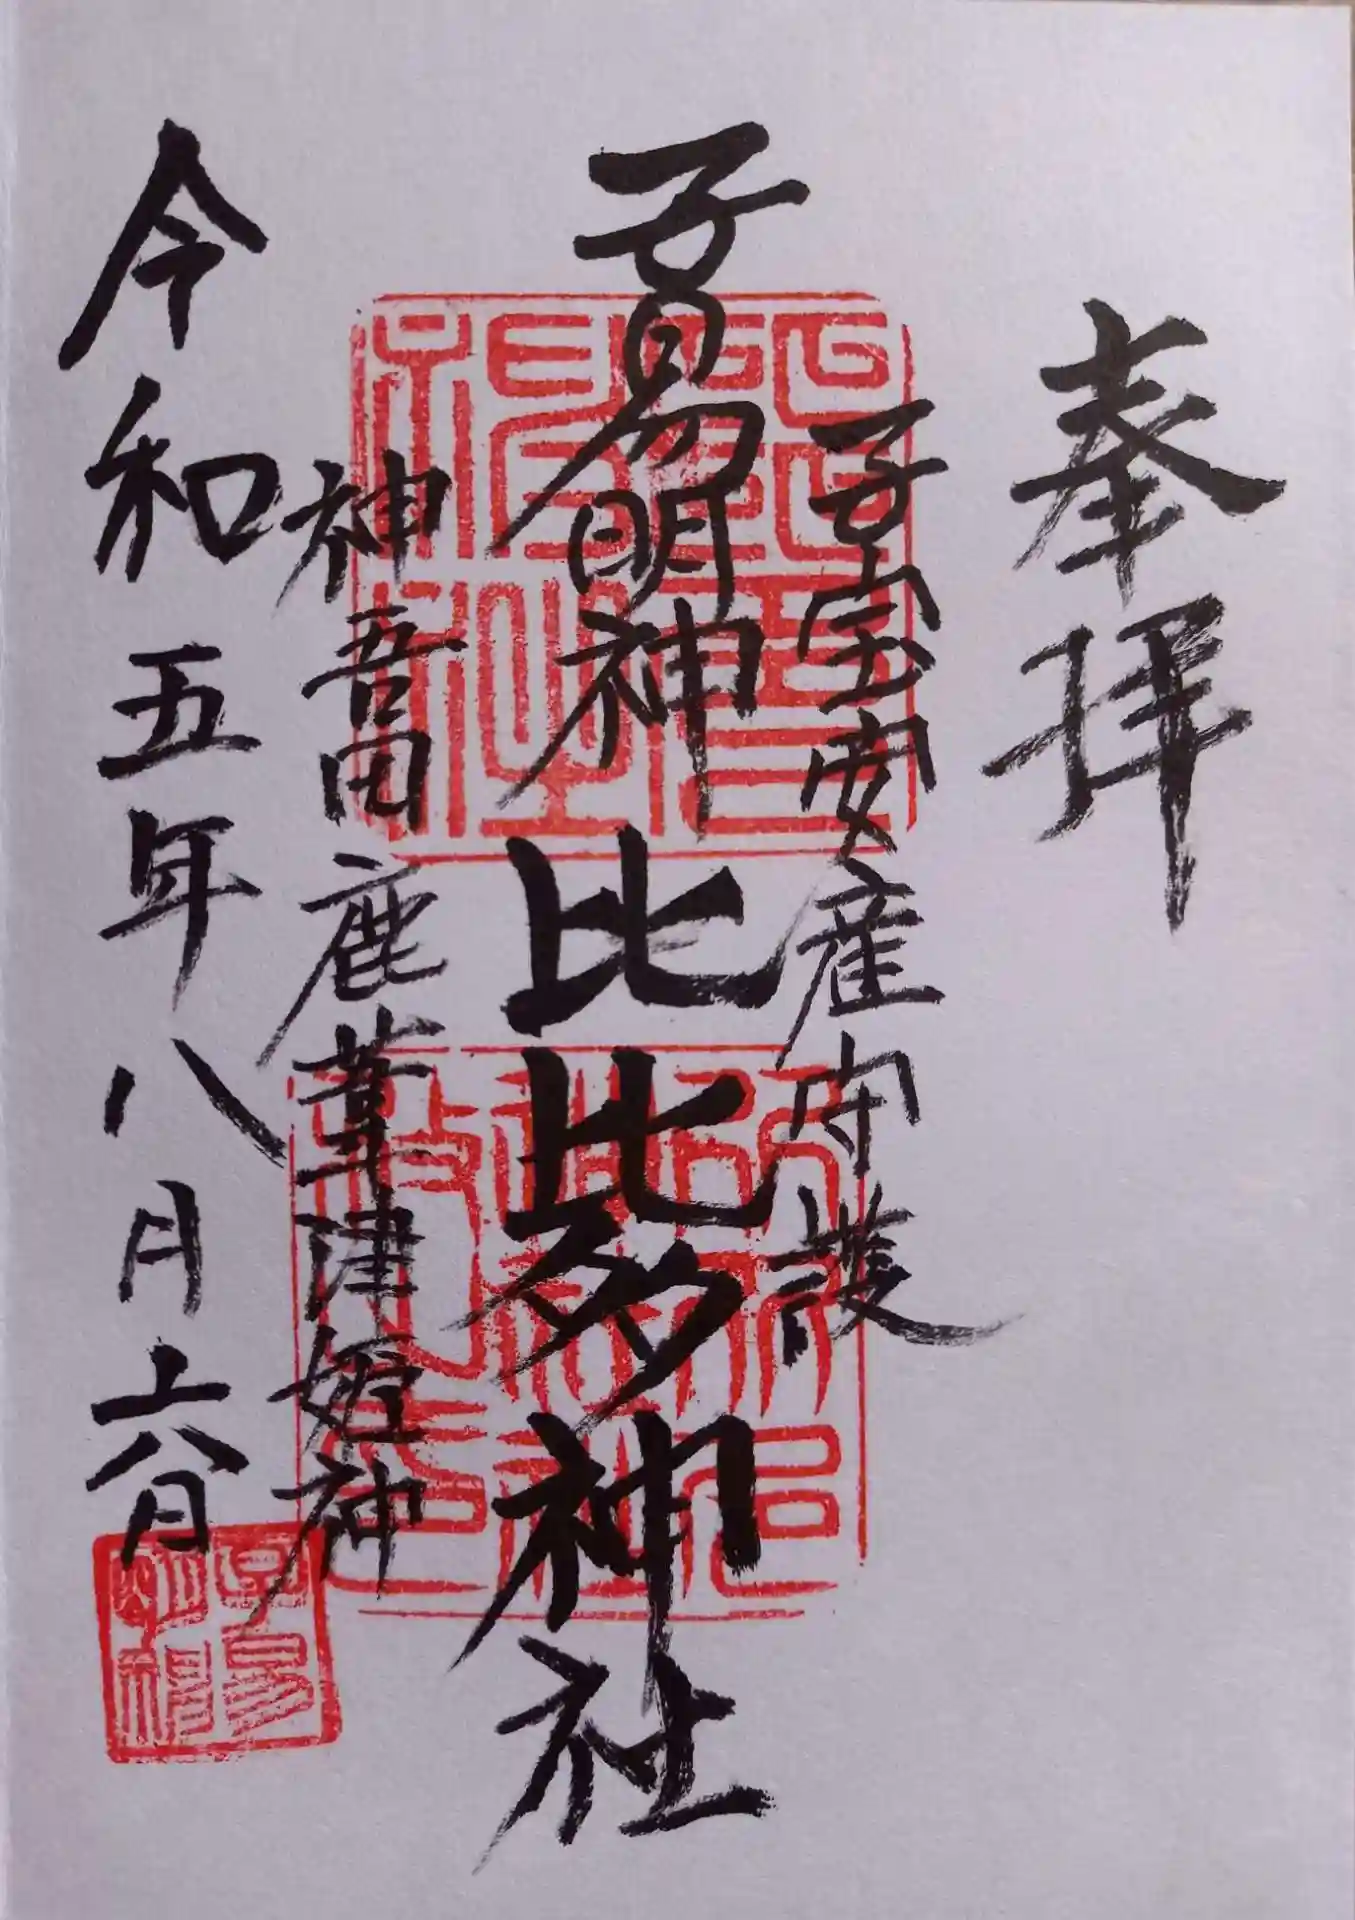 奉拝
子宝安産守護
子易明神 比比多神社
神吾田鹿葦津姫神
令和五年八月十六日
子易明神